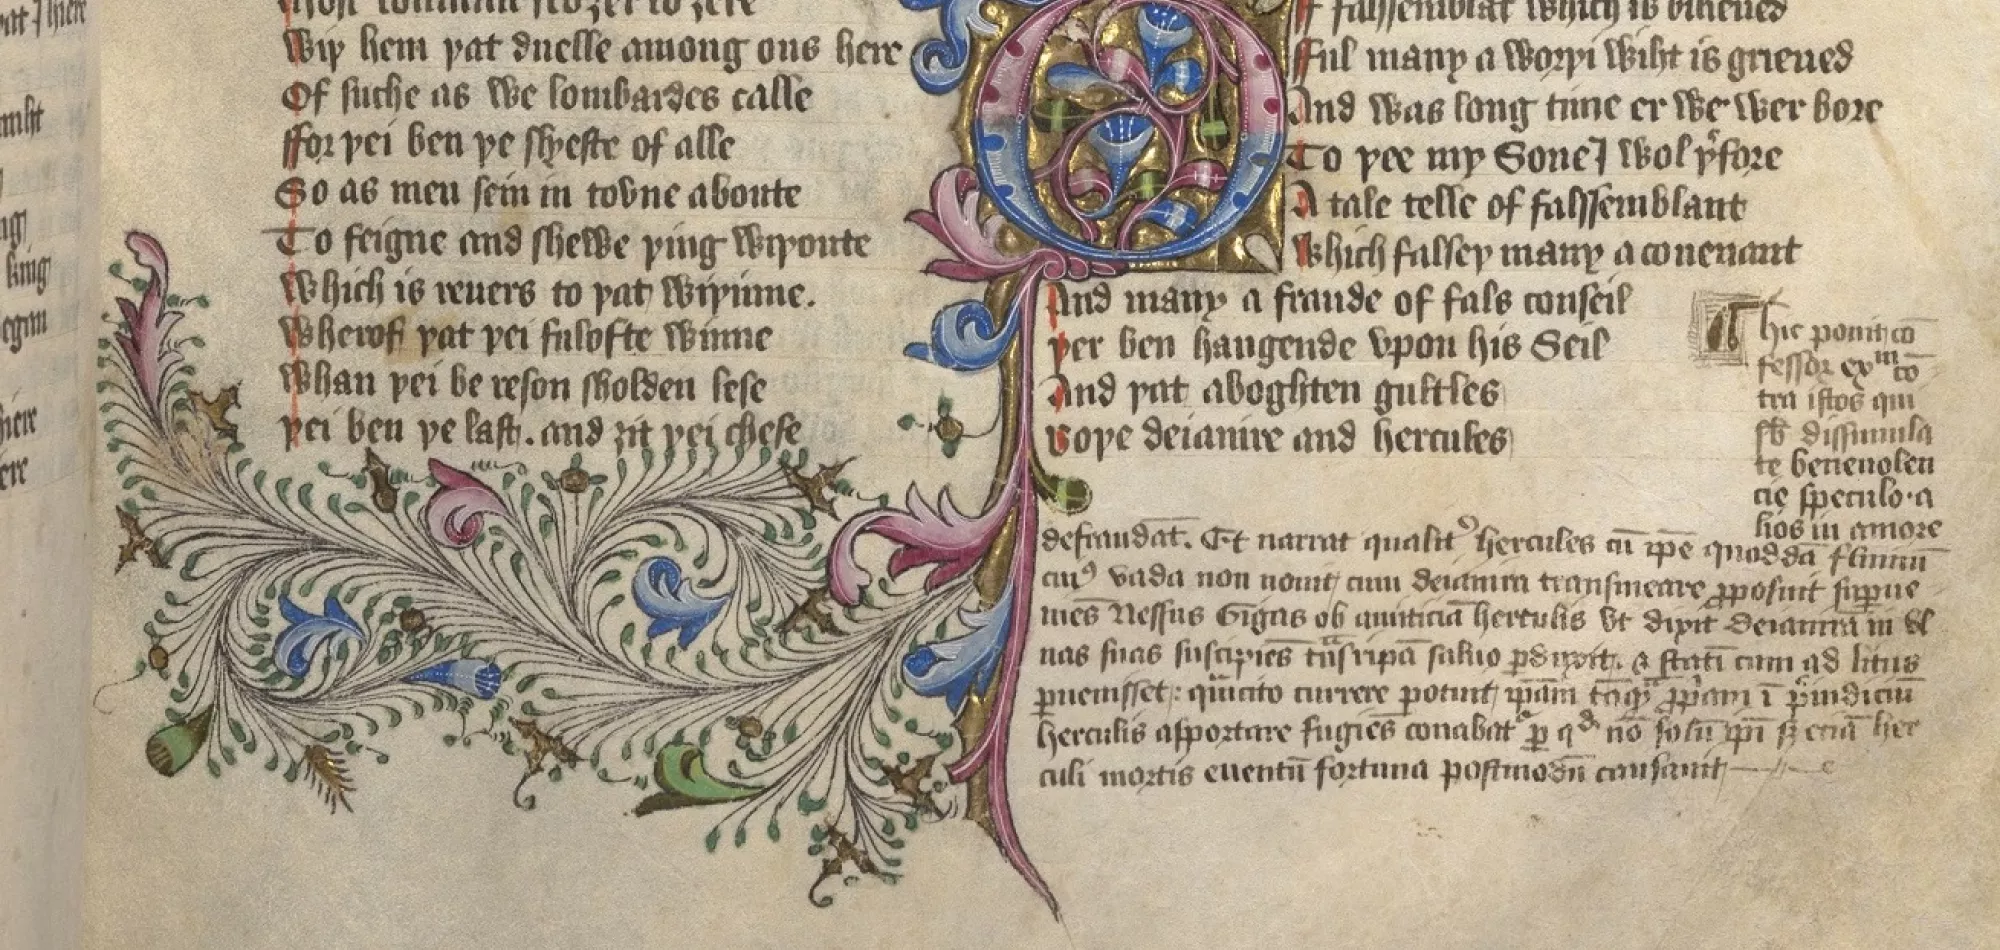 Wiþ hem þat duelle among ous here
Of suche as we lombardes calle
ffor þei ben þe slyeste of alle
So as men sein in tovne aboute
To feigne and shewe þing wiþoute
Which is reuers to þat wiþinne.
Wherof þat þei fulofte winne
Whan þei be reson sholden lese
Þei ben þe last. and ȝit þei chese
Of falssemblat which is bilieued
Fful many a worþi wiht is grieued
And was long time er we wer bore
To þee my Sone I wol þfore
A tale telle of falssemblant
Which falseþ many a couenant
And many a fraude of fals conseil
Þer ben hangende vpon his Seil
And þat aboghten gultles
Boþe deianire and hercules
Hic ponit co
fessor exm co
tra istos qui
sb dissimula
te beneuolen
cie speculo. a
lios in amore
defraudat. Et narrat qualit hercules cu ipe quodda flumu
cui9 vada non nouit cum deianira transmeare pposuit supue
nies Nessus Gigas ob amiticia herculis vt dixit deianira in vl
nas suas suscipies tns ripa saluo pduxit. & stati cum ad litus
puenisset: qcito currere potuit ipam
herculis asportare fugies conabat p qd no solu ipi s ecia her
culi mortis euentu fortuna postmodu causauit